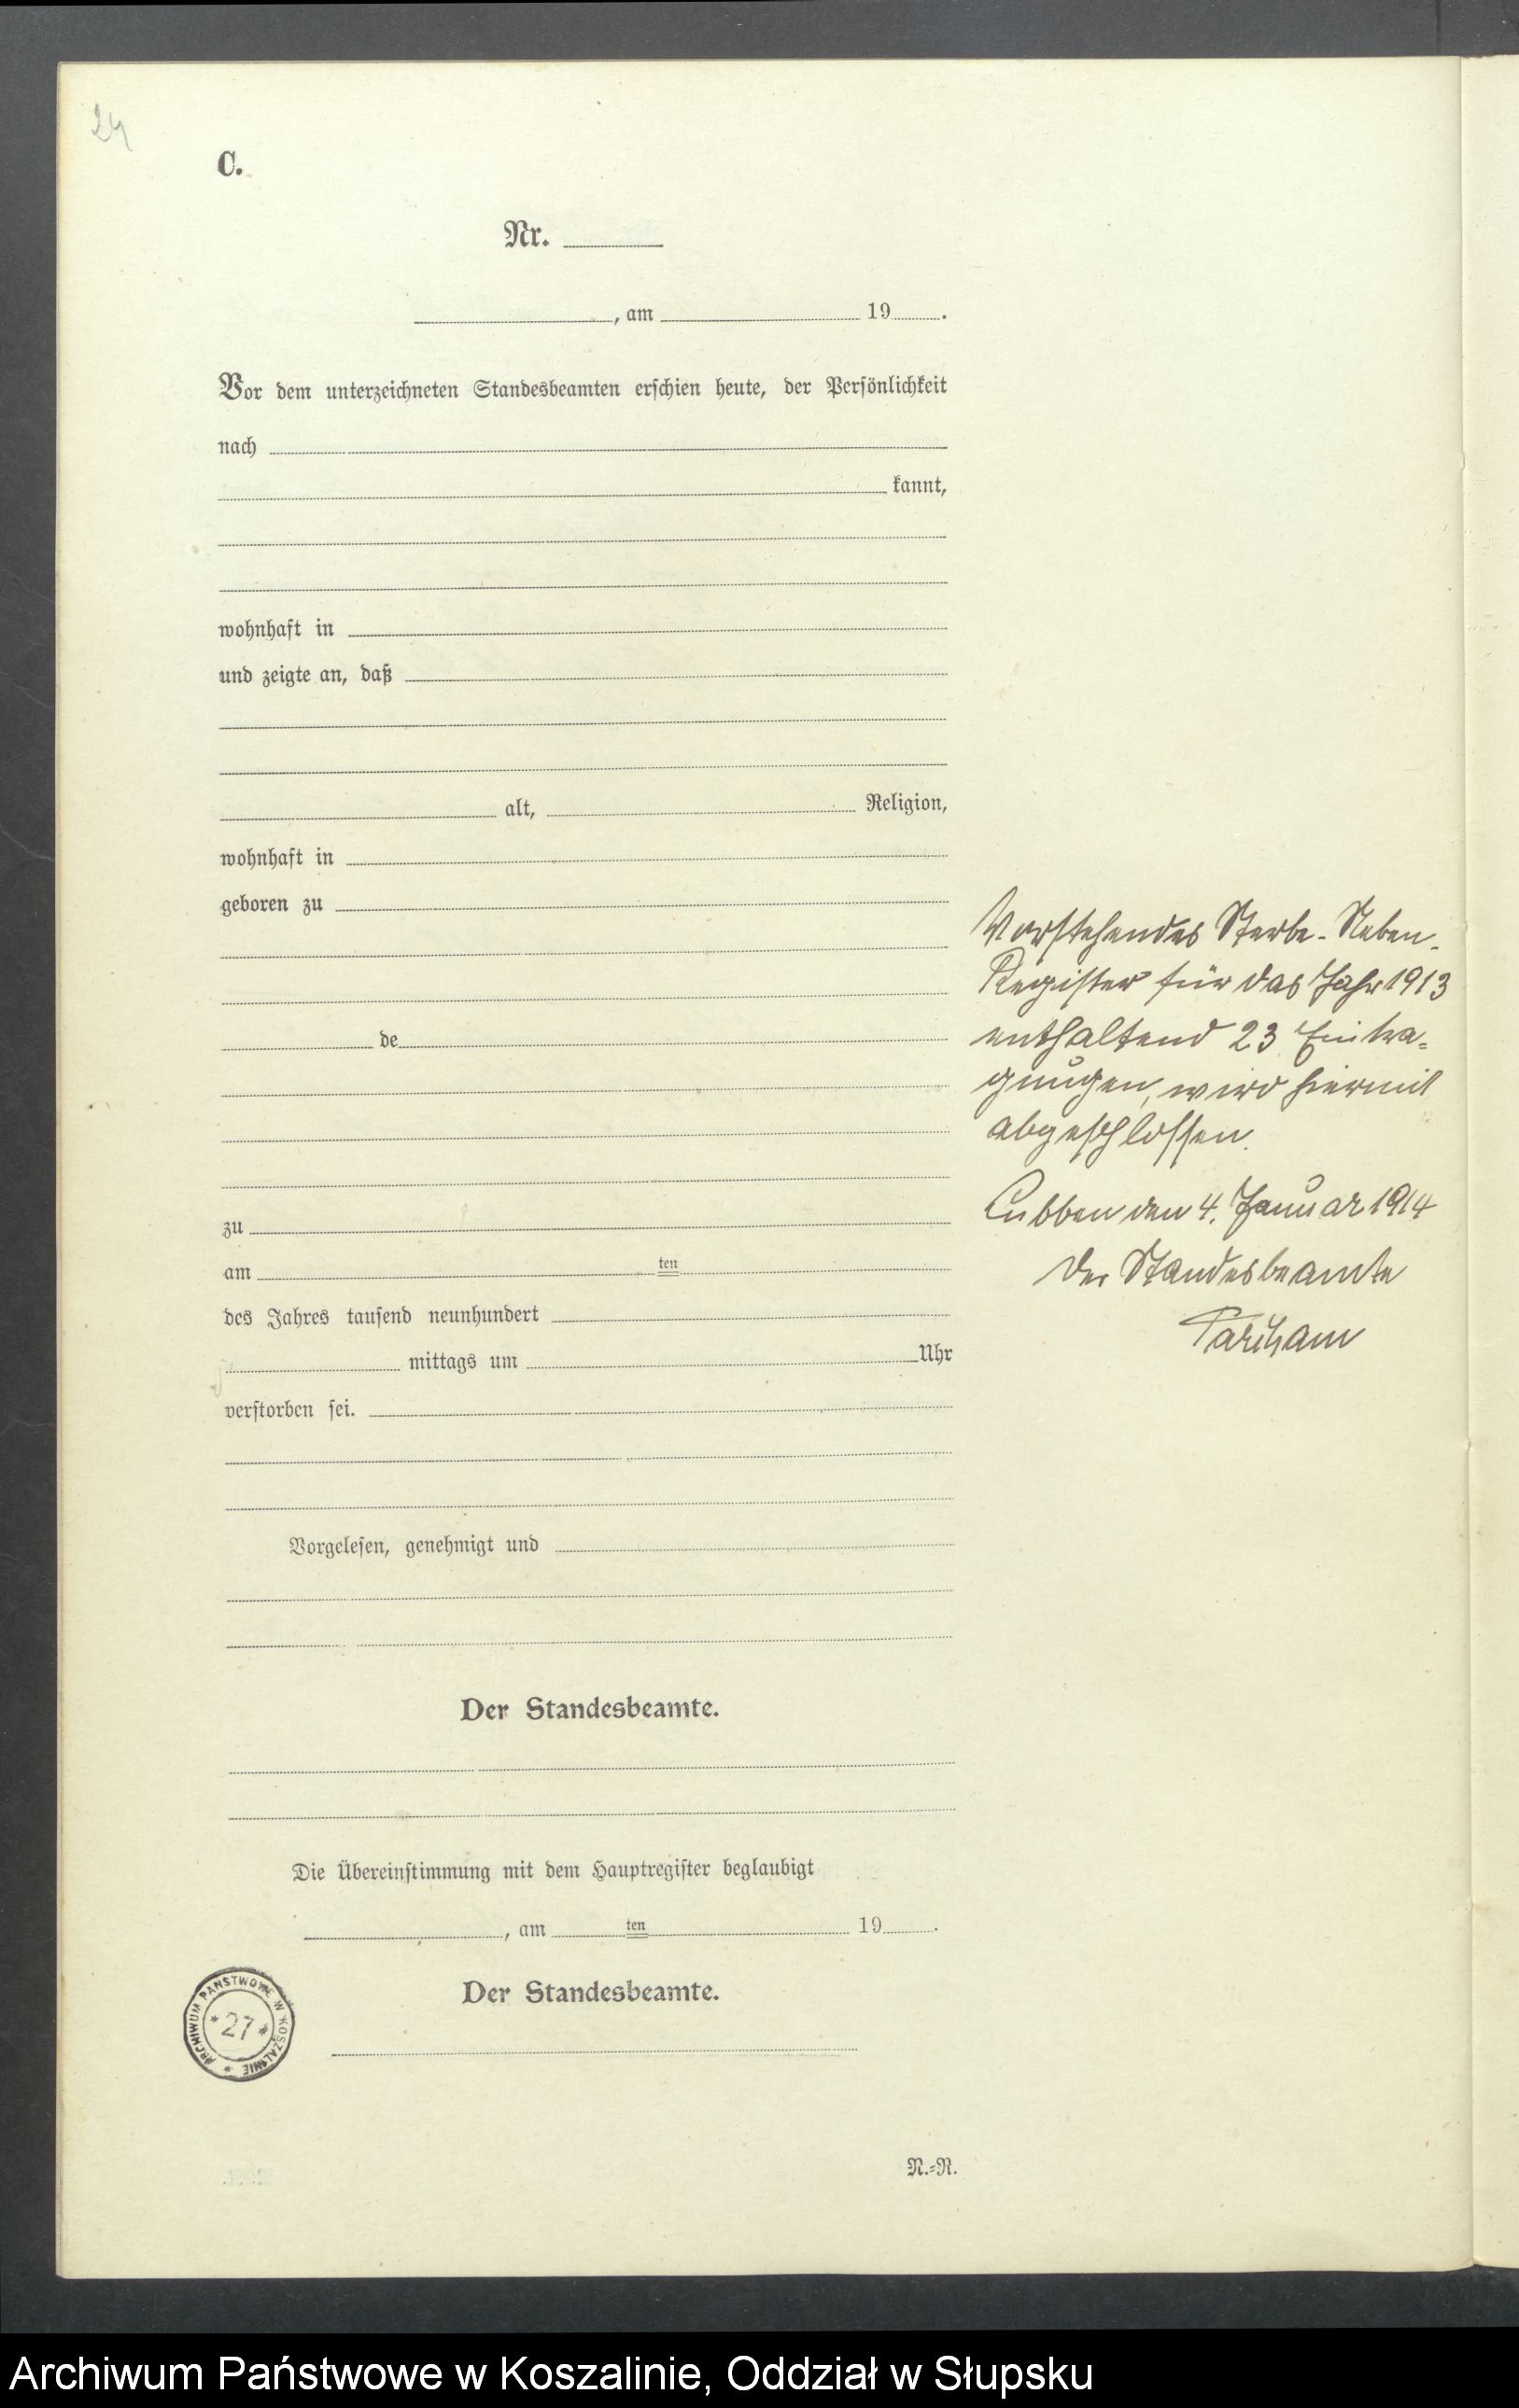 24
C.
Nr.
, am 19 .
Vor dem unterzeichneten Standesbeamten erschien heute, der Persönlichkeit
nach
kannt,
wohnhaft in
und zeigte an, daß
alt, Religion,
wohnhaft in
geboren zu
de
zu
am ten
des Jahres tausend neunhundert
mittags um Uhr
verstorben sei.
Vorgelesen, genehmigt und
Der Standesbeamte.
Die Übereinstimmung mit dem Hauptregister beglaubigt
, am ten 19 .
Der Standesbeamte.
N.=R.
Vorstehendes Sterbe-Neben-
Register für das Jahr 1913
enthaltend 23 Eintra=
gungen, wird hiermit
abgeschlossen.
Lubben den 4. Januar 1914
Der Standesbeamte
ARCHIWUM PAŃSTWOWE W KOSZALINIE
* 27 *
Archiwum Państwowe w Koszalinie, Oddział w Słupsku